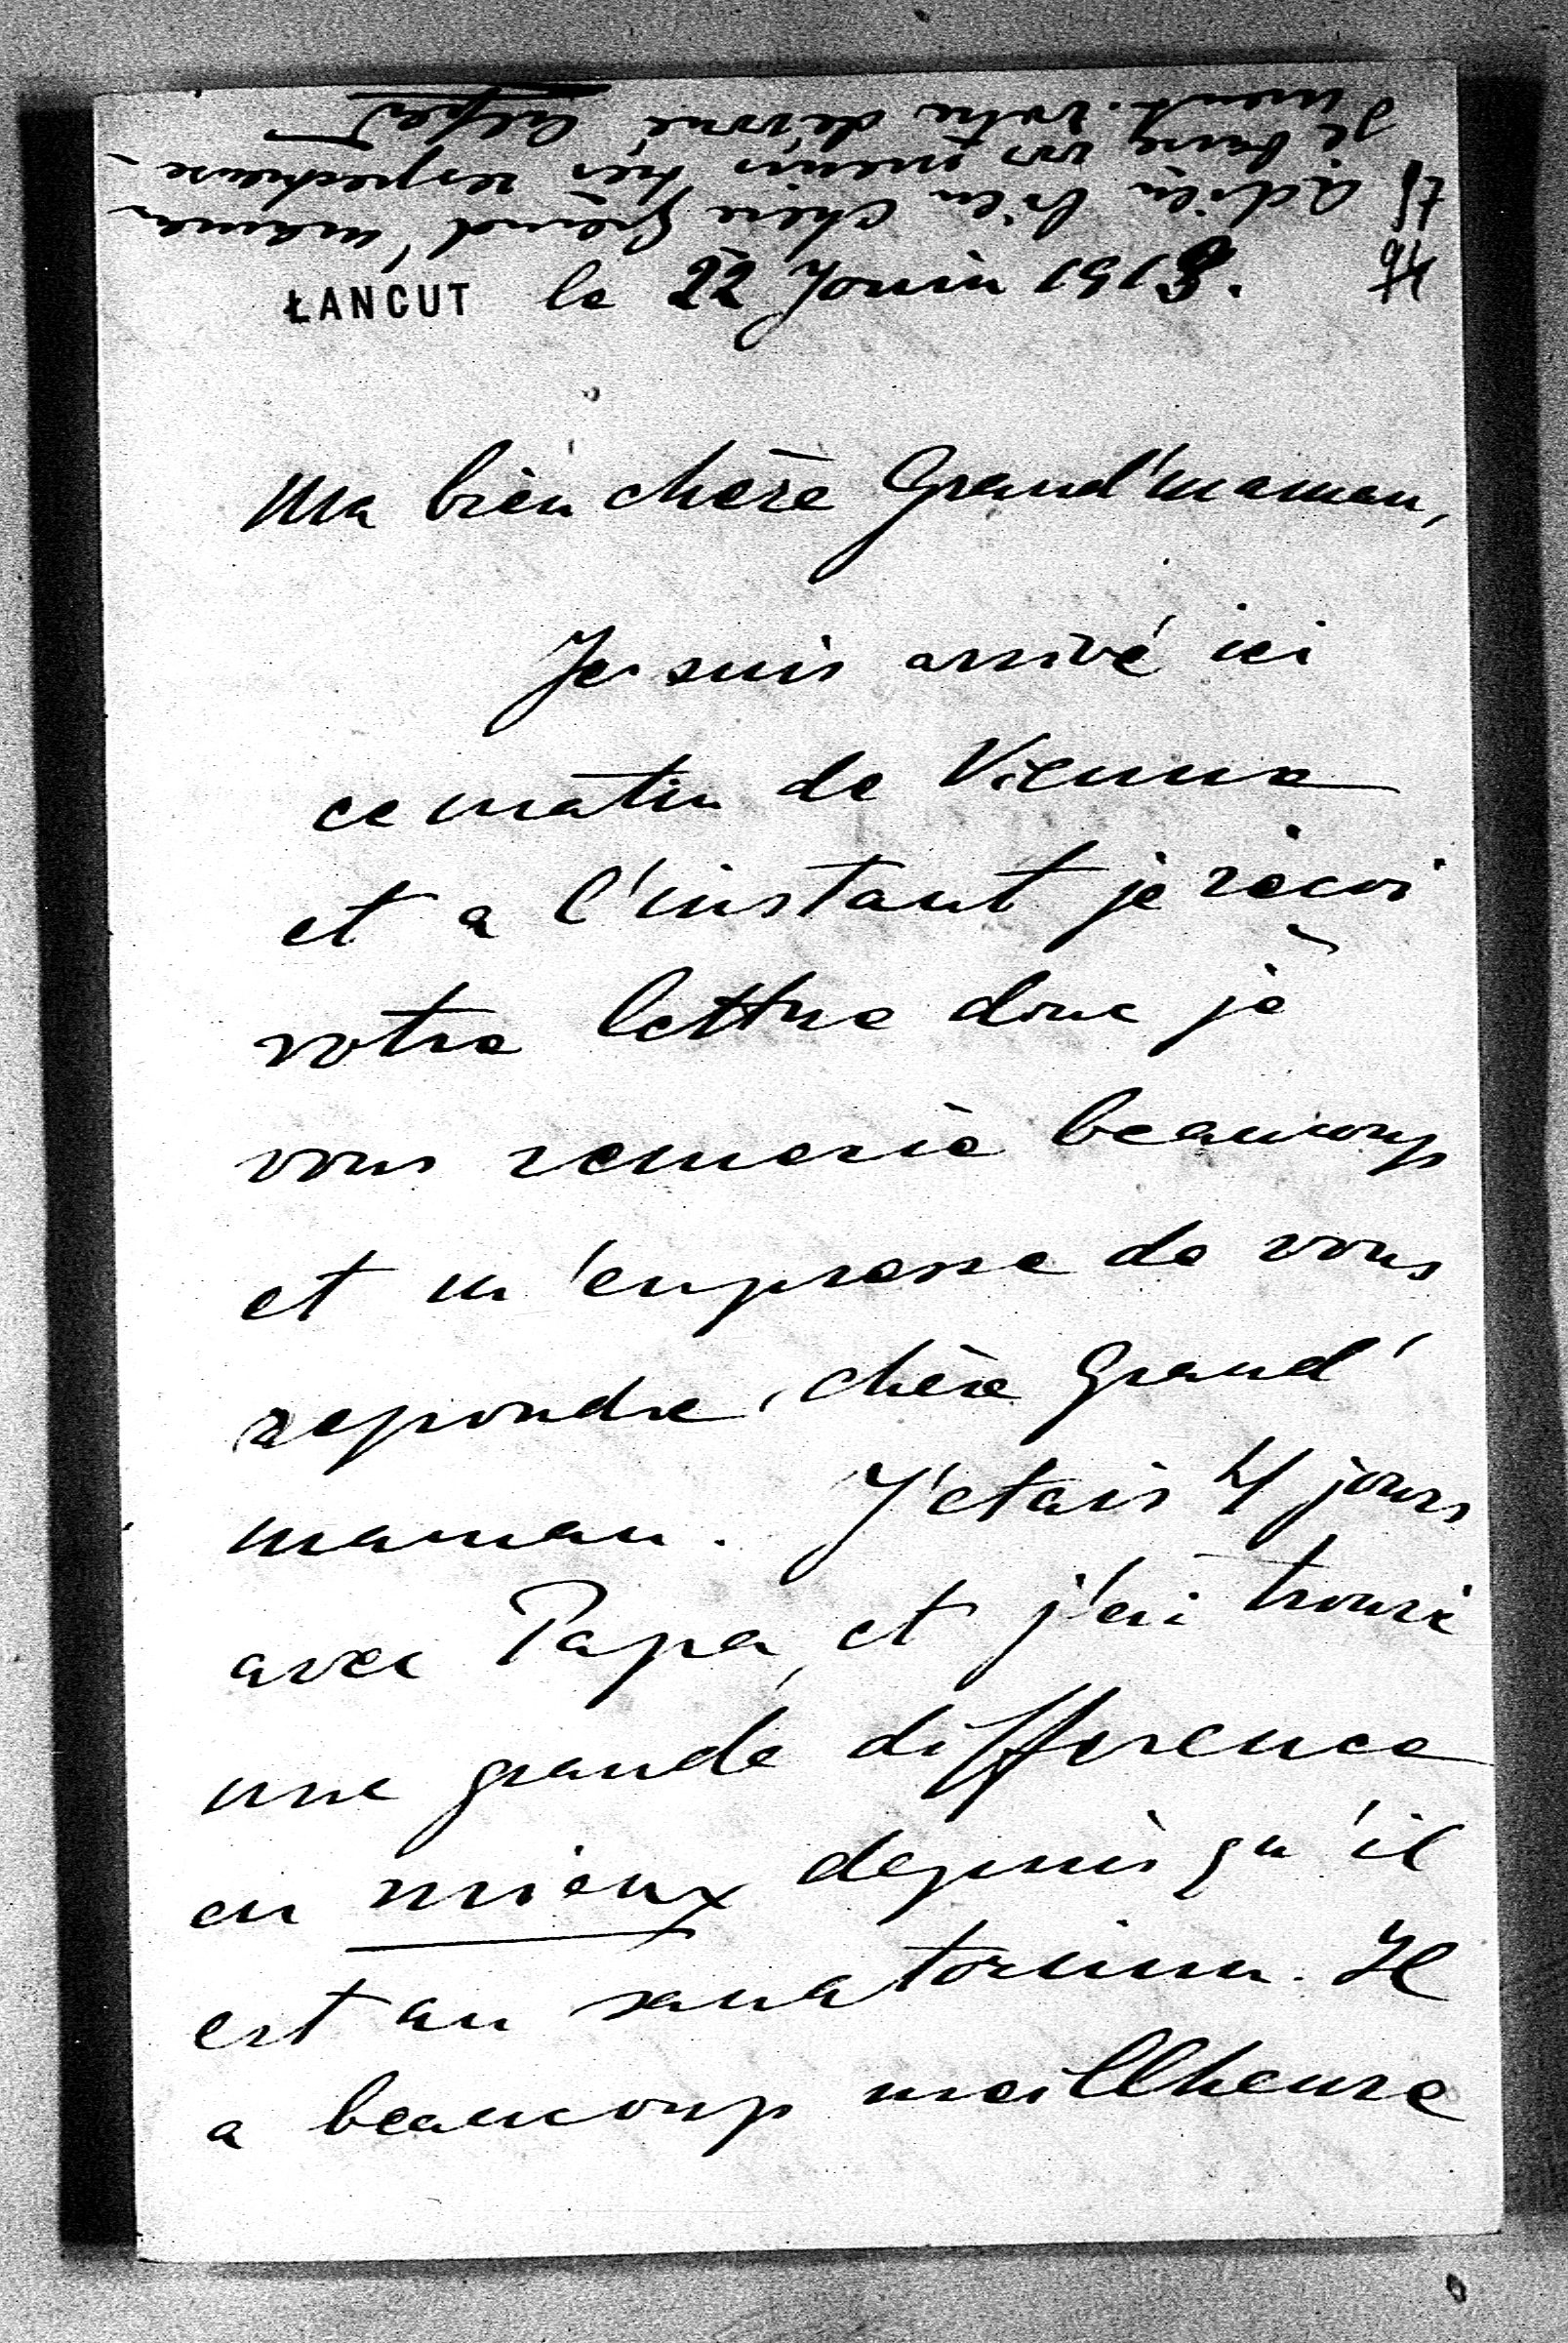 ŁANCUT le 22 Jouin 1913.
Ma bien chère Grand'maman,
Je suis arrivé ici
ce matin de Vienne
et a l'instant je recoi
votre lettre donc je
vous remercie beaucoup
et m'empresse de vous
repondre, chère Grand'
maman. J'etais 4 jours
avec Papa, et j'ai trouvé
une grande difference
en mieux depuis qu'il
est au sanatorium. Il
a beaucoup meillheure
Adieu bien chère Grand'maman
je baise vos mains très respectueuse-
ment. Votre devoué